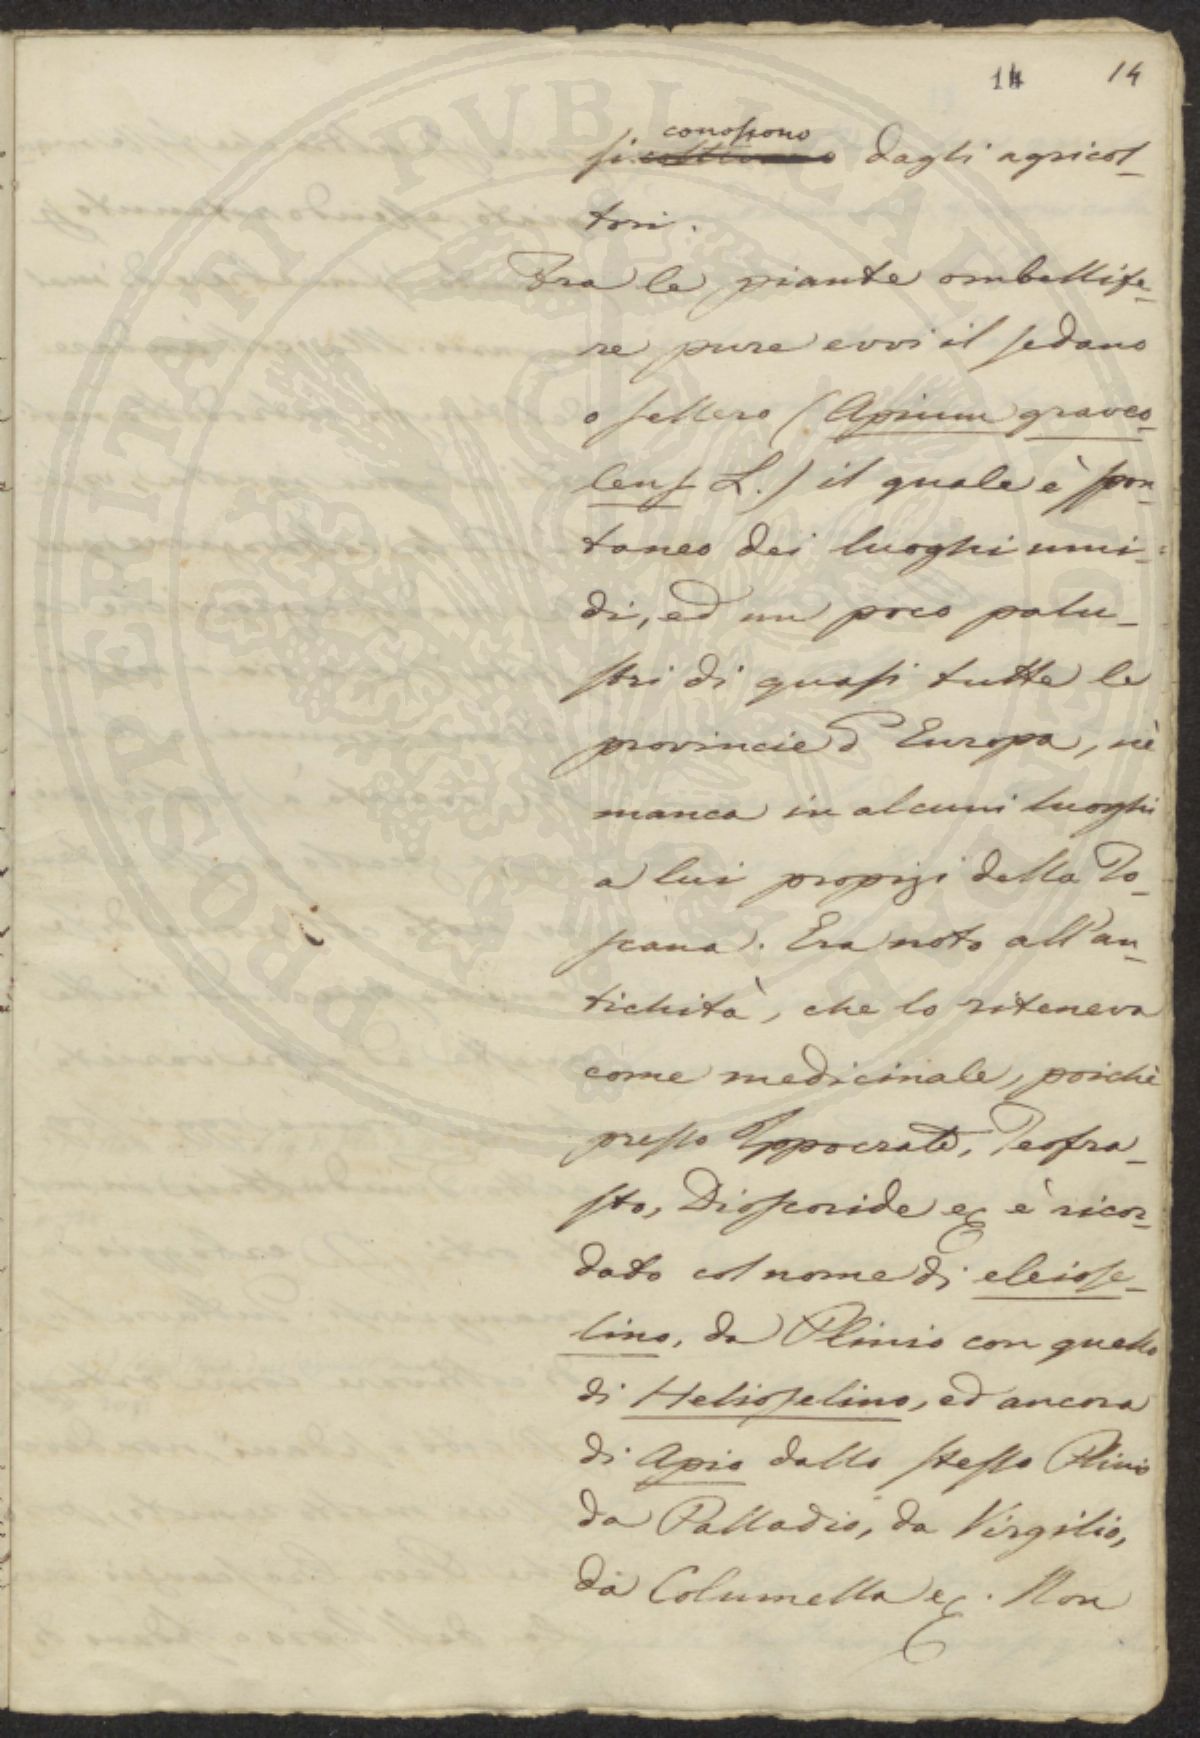 14 14
conoscono
si coltivano dagli agricol-
tori.
Fra le piante ombellife-
re pure evvi il sedano
o sellero (Apium graveo-
lens L.) il quale è spon-
taneo dei luoghi umi-
di, ed un poco palu-
stri di quasi tutte le
provincie d'Europa, nè
manca in alcuni luoghi
a lui propizi della To-
scana. Era noto all'an-
tichità, che lo riteneva
come medicinale, poichè
presso Ippocrate, Teofra-
sto, Dioscoride ec è ricor-
dato col nome di eleiose-
lino, da Plinio con quello
di Helioselino, ed ancora
di Apio dallo stesso Plinio
da Palladio, da Virgilio,
da Columella ec. Non
PROSPERITATI PUBLICAE AUGENDAE